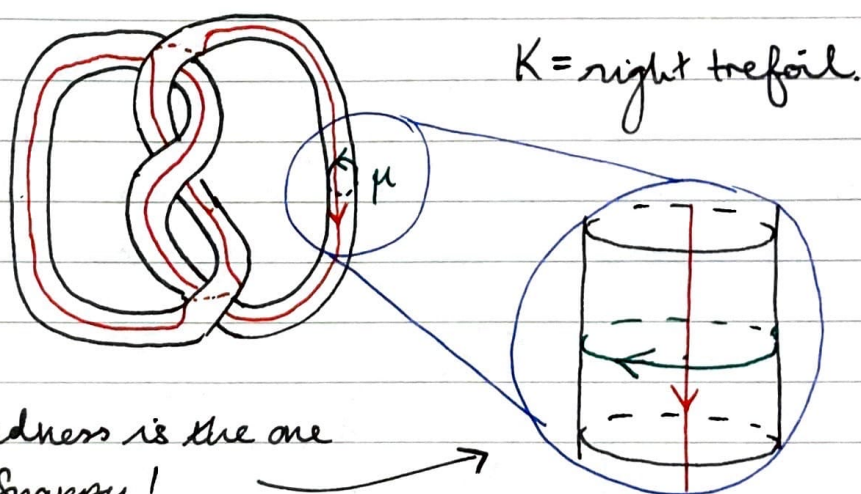 K = right trefoil.
μ
dness is the one
Snappy!